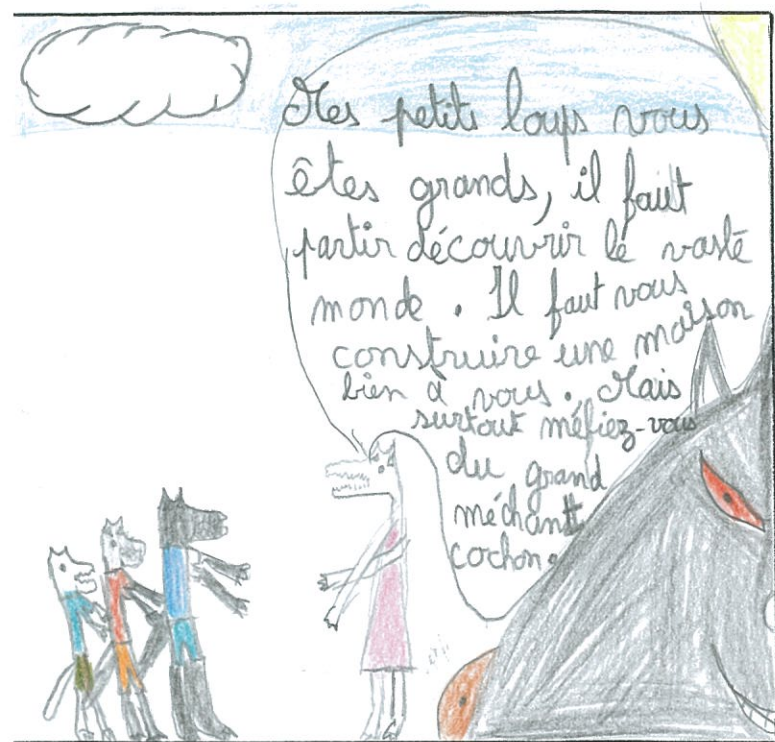 Mes petits loups vous
êtes grands, il faut
partir découvrir le vaste
monde. Il faut vous
construire une maison
bien à vous. Mais
surtout méfiez-vous
du grand
méchant
cochon.